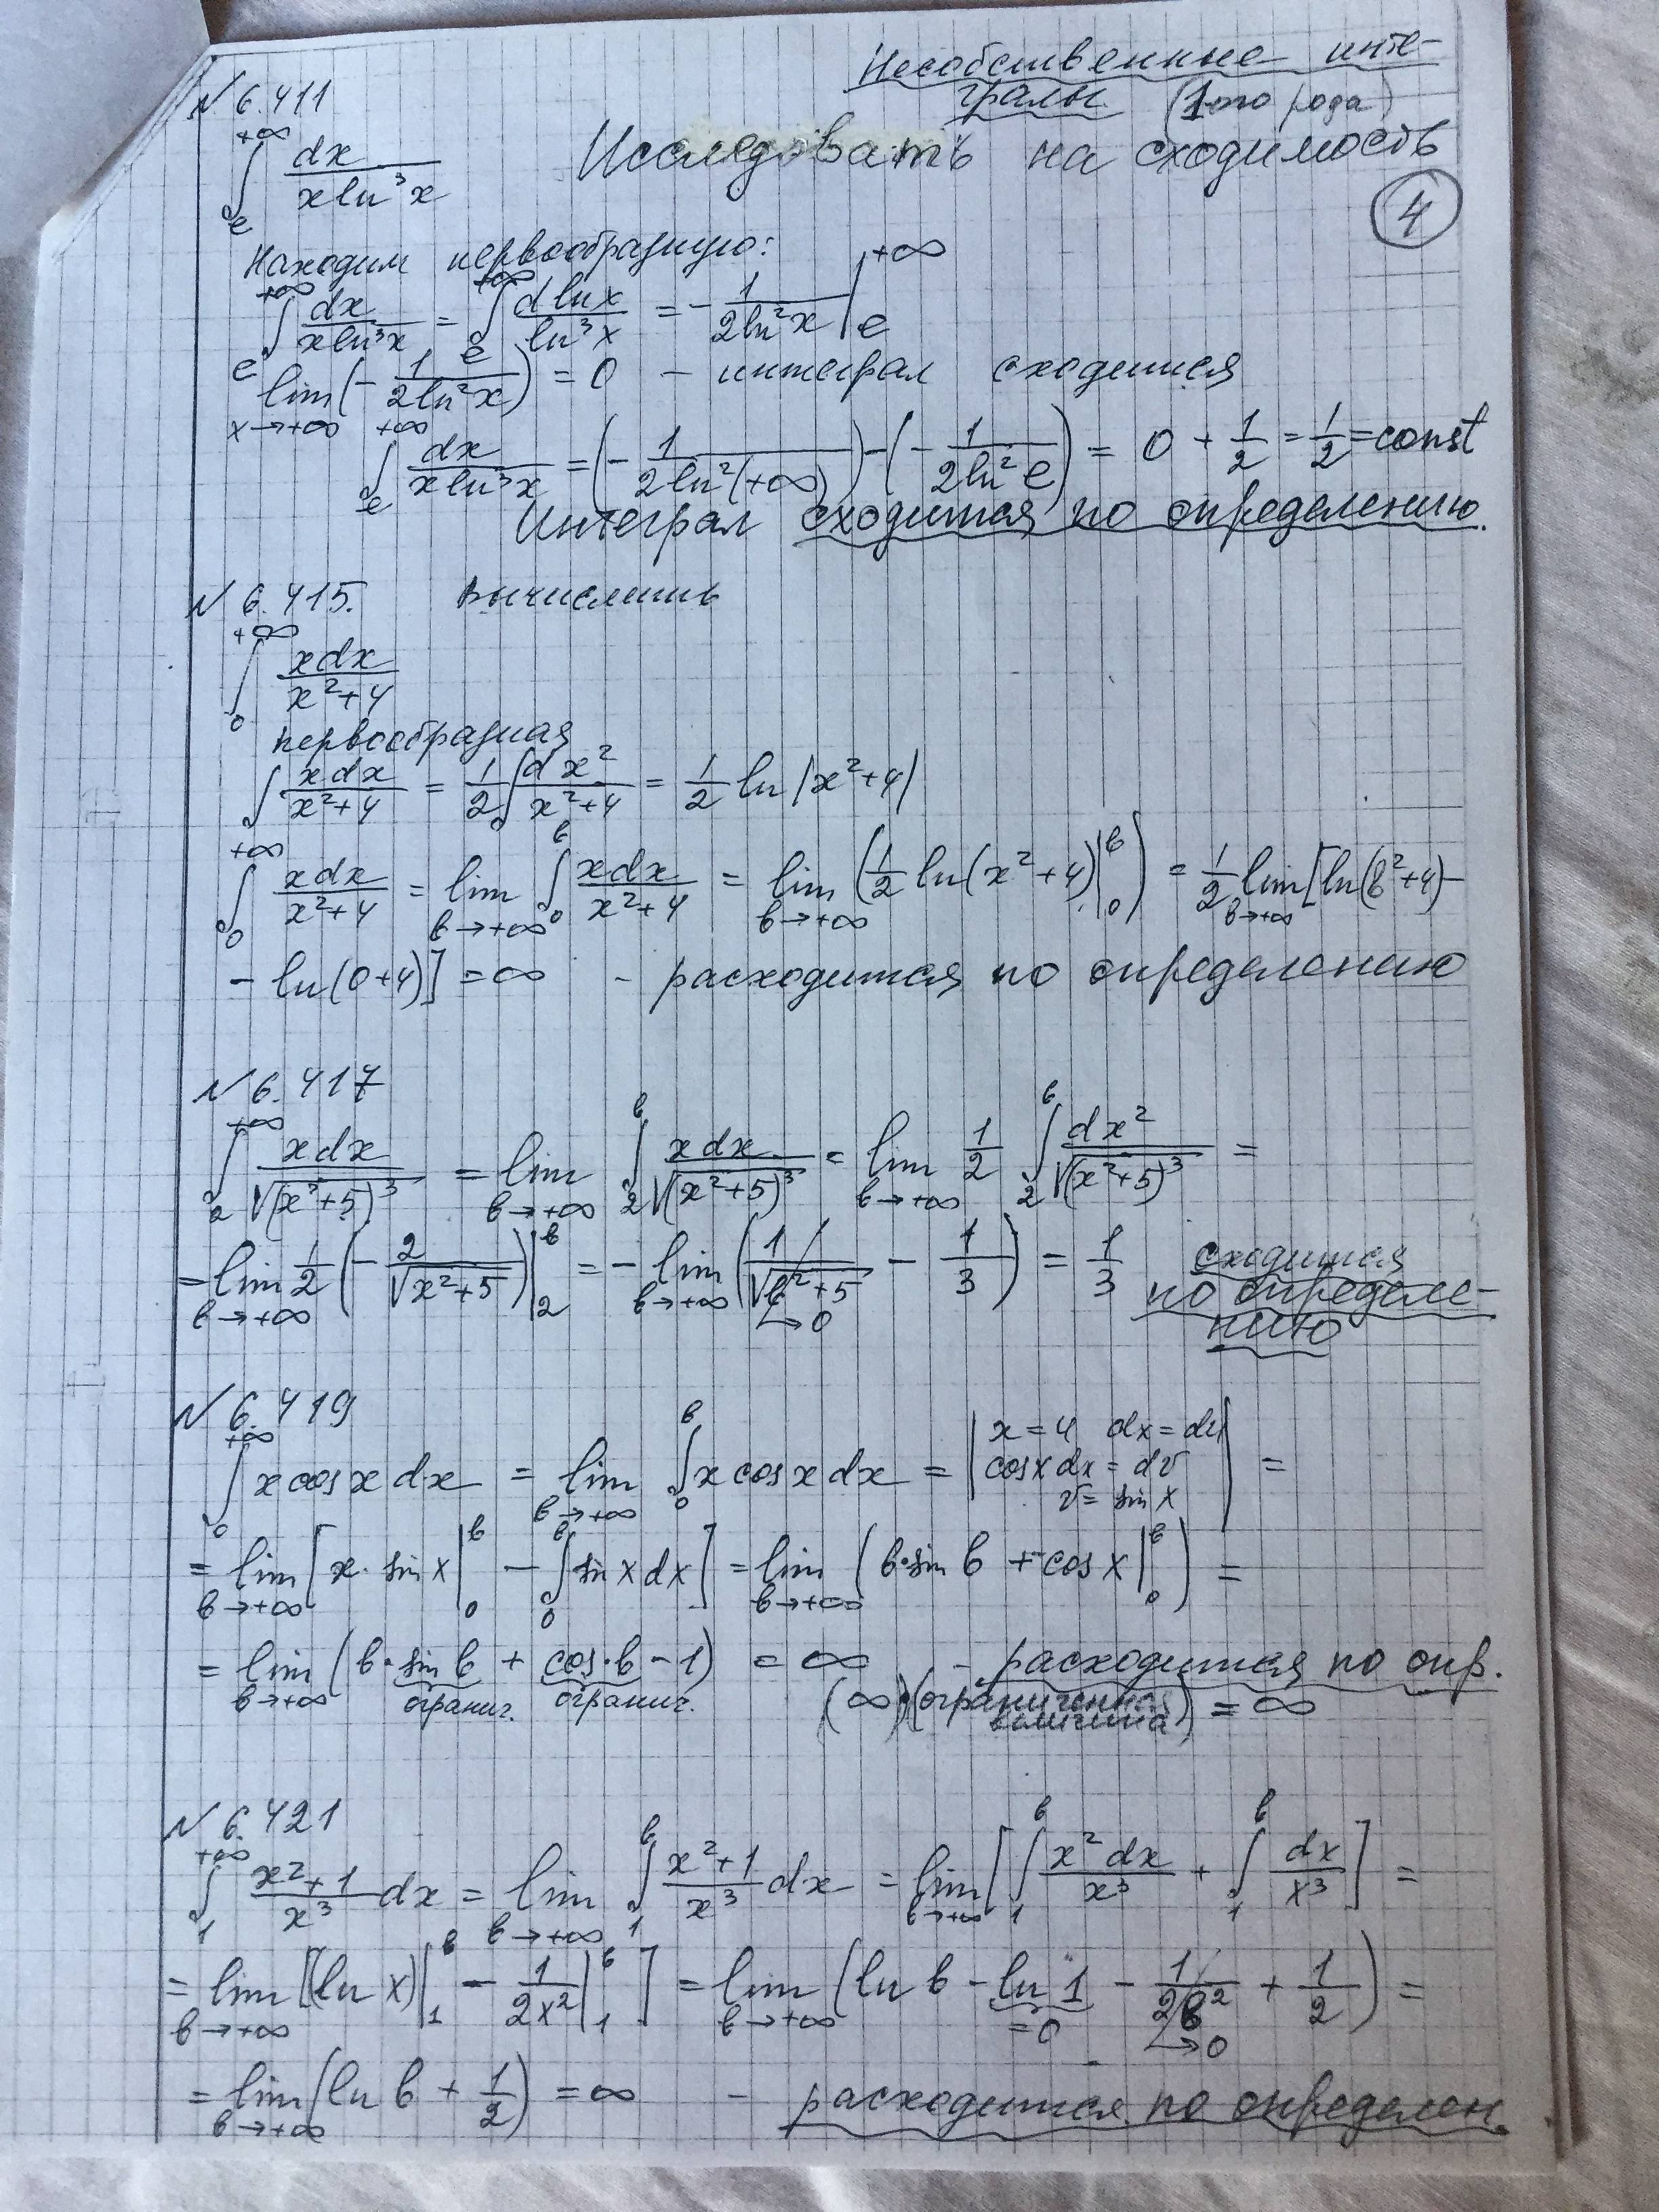 Несобственные инте-
гралы (1-ого рода)
N 6.411
∫_e^{+∞} dx/(x ln³x) Исследовать на сходимость
4
Находим первообразную:
∫_e^{+∞} dx/(x ln³x) = ∫_e^{+∞} d ln x/(ln³x) = -1/(2ln²x) |_e^{+∞}
lim_{x→+∞} (-1/(2ln²x)) = 0 – интеграл сходится
∫_e^{+∞} dx/(x ln³x) = (-1/(2ln²(+∞))) - (-1/(2ln²e)) = 0 + 1/2 = 1/2 = const
Интеграл сходится по определению.
N 6.415. Вычислить
∫_0^{+∞} xdx/(x²+4)
первообразная
∫ xdx/(x²+4) = 1/2 ∫ dx²/(x²+4) = 1/2 ln|x²+4|
∫_0^{+∞} xdx/(x²+4) = lim_{b→+∞} ∫_0^b xdx/(x²+4) = lim_{b→+∞} (1/2 ln(x²+4)|_0^b) = 1/2 lim_{b→+∞} [ln(b²+4) -
- ln(0+4)] = ∞ - расходится по определению
N 6.417
∫_2^{+∞} xdx/√(x²+5)³ = lim_{b→+∞} ∫_2^b xdx/√(x²+5)³ = lim_{b→+∞} 1/2 ∫_2^b dx²/√(x²+5)³ =
= lim_{b→+∞} 1/2 (-2/√(x²+5))|_2^b = - lim_{b→+∞} (1/√(b²+5) - 1/3) = 1/3 сходится
→0 по определе-
нию
N 6.419
∫_0^{+∞} x cos x dx = lim_{b→+∞} ∫_0^b x cos x dx = | x = u dx = du
cos x dx = dv
v = sin x | =
= lim_{b→+∞} [x · sin x|_0^b - ∫_0^b sin x dx] = lim_{b→+∞} (b·sin b + cos x|_0^b) =
= lim_{b→+∞} (b·sin b + cos·b - 1) = ∞ - расходится по опр.
огранич. огранич. (∞)·(ограниченная величина) = ∞
N 6.421
∫_1^{+∞} (x²+1)/x³ dx = lim_{b→+∞} ∫_1^b (x²+1)/x³ dx = lim_{b→+∞} [∫_1^b x²dx/x³ + ∫_1^b dx/x³] =
= lim_{b→+∞} [(ln x)|_1^b - 1/(2x²)|_1^b] = lim_{b→+∞} (ln b - ln 1 - 1/(2b²) + 1/2) =
=0 →0
= lim_{b→+∞} (ln b + 1/2) = ∞ - расходится по определен.